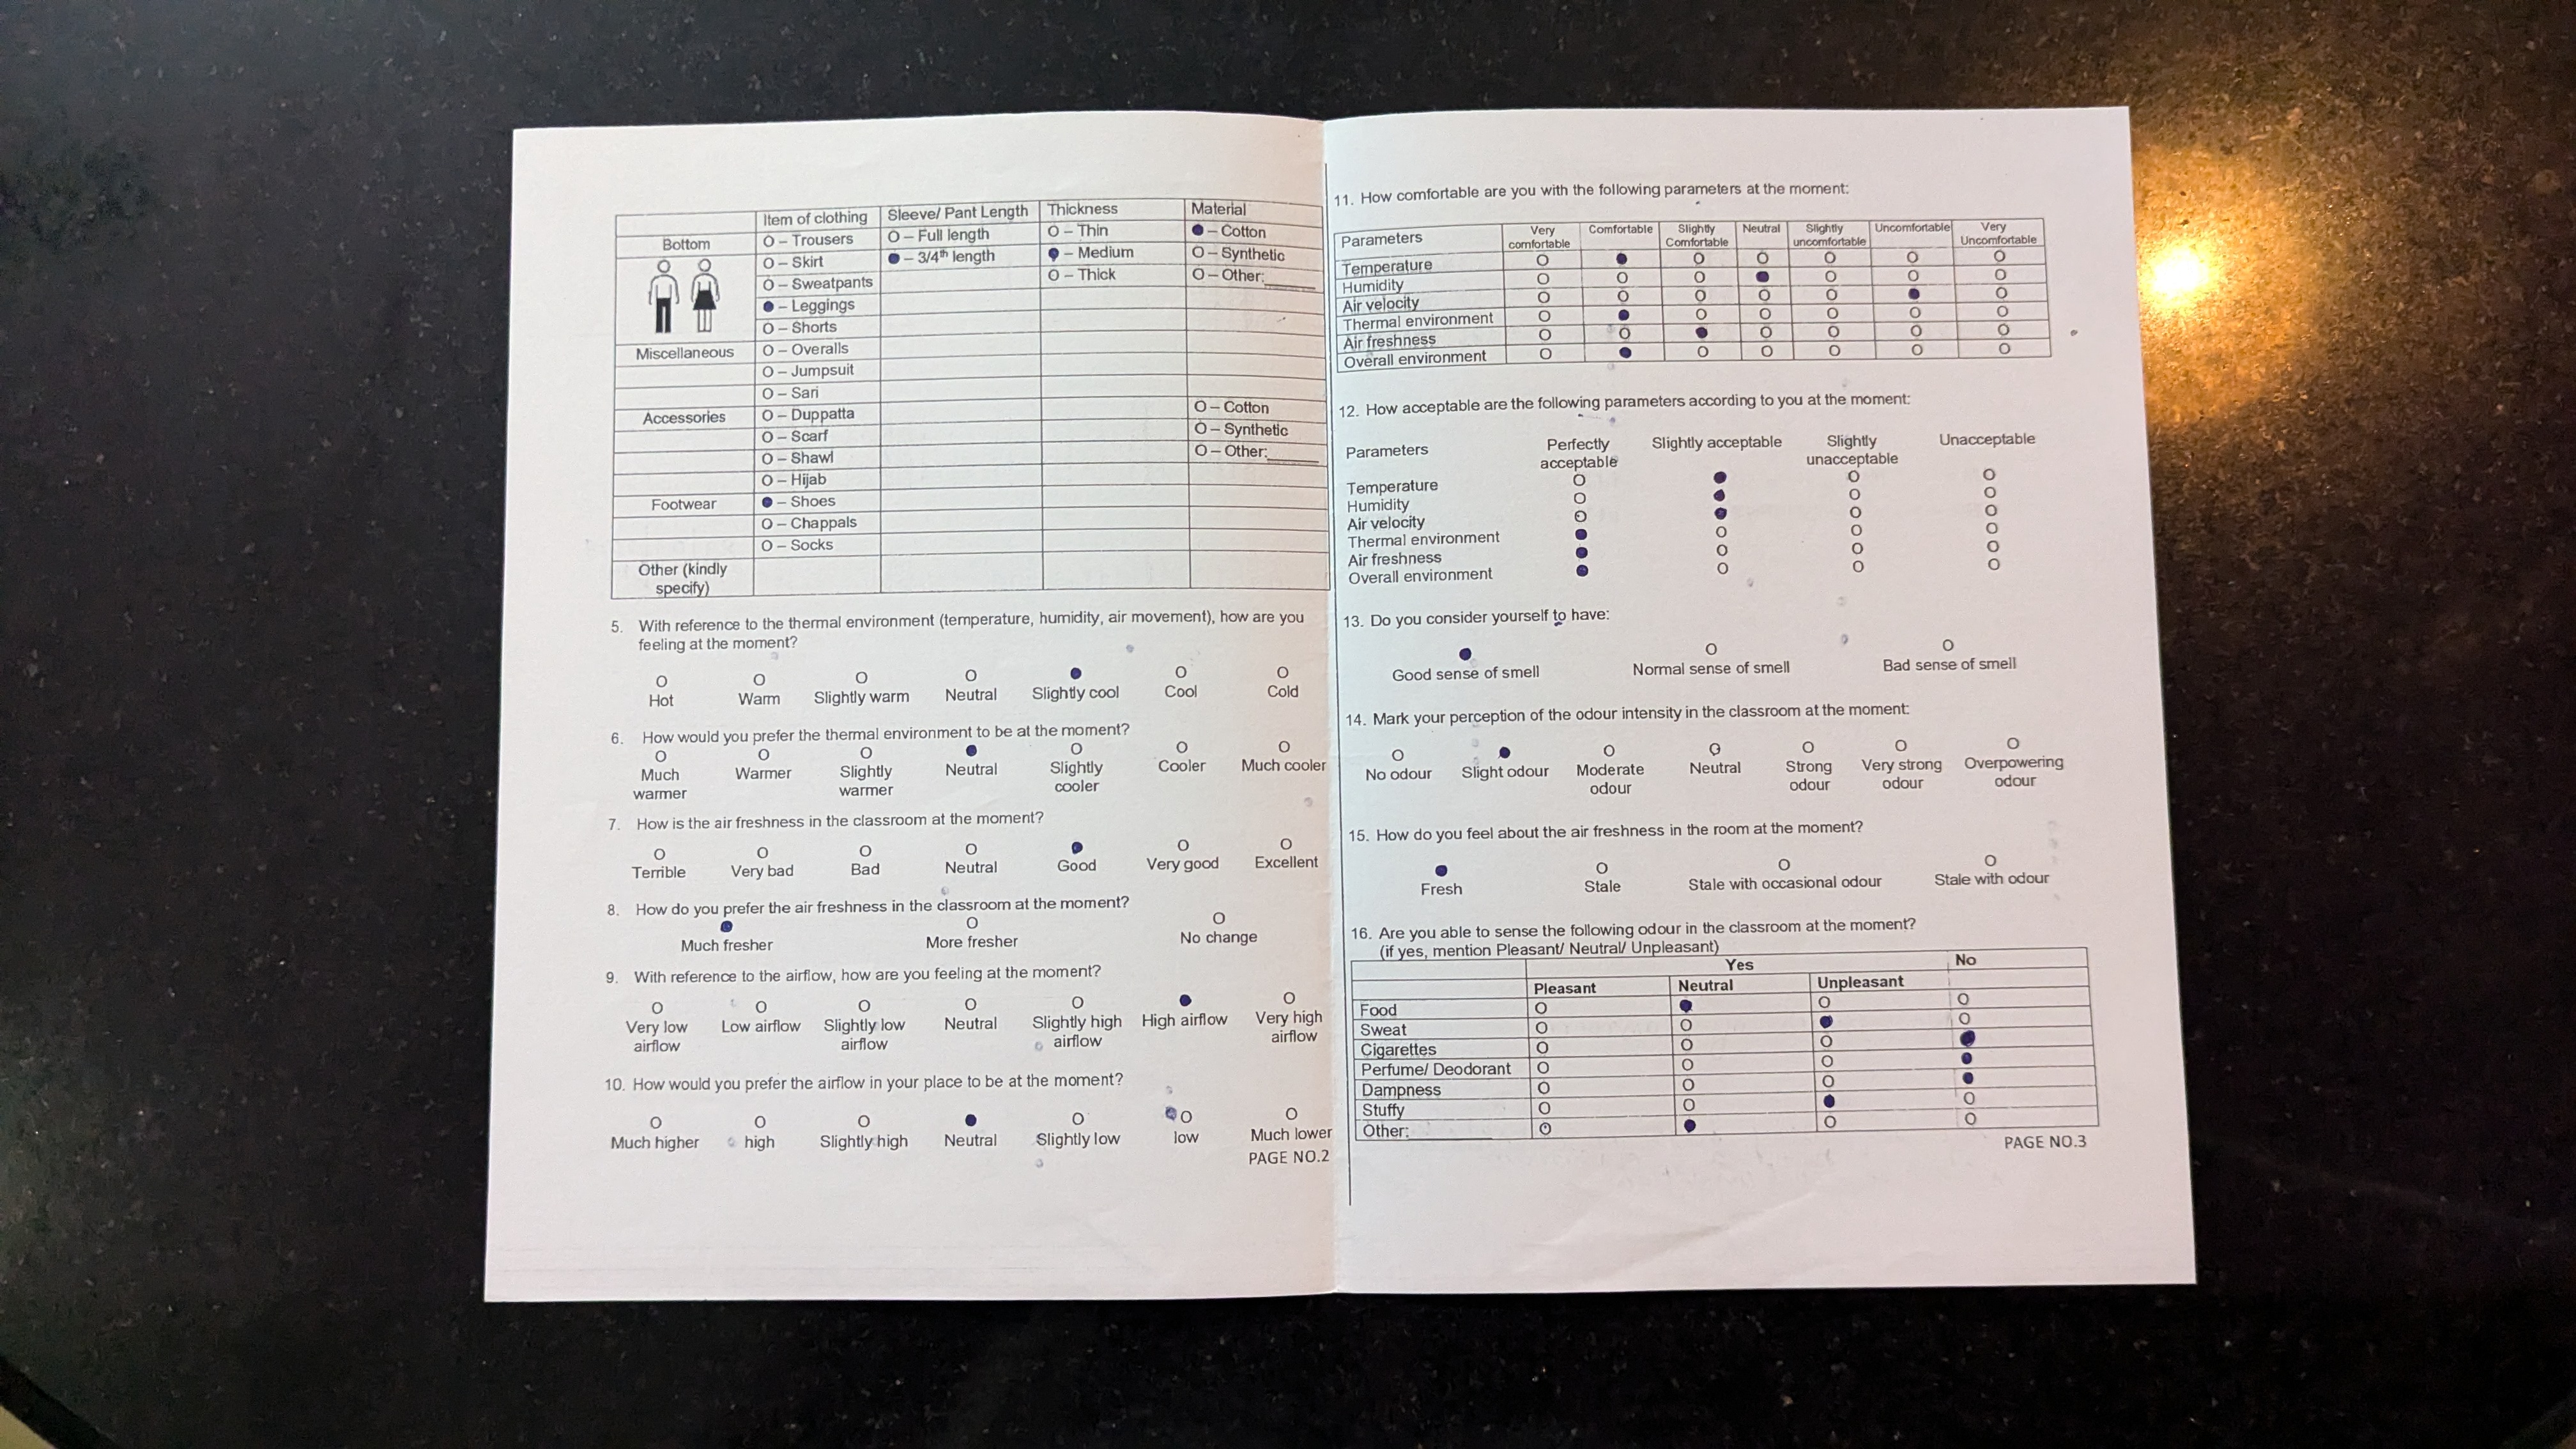 Item of clothing Sleeve/ Pant Length Thickness Material
Bottom O – Trousers O – Full length O – Thin ● – Cotton
O – Skirt ● – 3/4th length ● – Medium O – Synthetic
O – Sweatpants O – Thick O – Other:______
● – Leggings
O – Shorts
Miscellaneous O – Overalls
O – Jumpsuit
O – Sari
Accessories O – Duppatta O – Cotton
O – Scarf O – Synthetic
O – Shawl O – Other:______
O – Hijab
Footwear ● – Shoes
O – Chappals
O – Socks
Other (kindly
specify)
5. With reference to the thermal environment (temperature, humidity, air movement), how are you
feeling at the moment?
O O O O ● O O
Hot Warm Slightly warm Neutral Slightly cool Cool Cold
6. How would you prefer the thermal environment to be at the moment?
O O O ● O O O
Much Warmer Slightly Neutral Slightly Cooler Much cooler
warmer warmer cooler
7. How is the air freshness in the classroom at the moment?
O O O O ● O O
Terrible Very bad Bad Neutral Good Very good Excellent
8. How do you prefer the air freshness in the classroom at the moment?
● O O
Much fresher More fresher No change
9. With reference to the airflow, how are you feeling at the moment?
O O O O O ● O
Very low Low airflow Slightly low Neutral Slightly high High airflow Very high
airflow airflow airflow airflow
10. How would you prefer the airflow in your place to be at the moment?
O O O ● O O O
Much higher high Slightly high Neutral Slightly low low Much lower
PAGE NO.2
11. How comfortable are you with the following parameters at the moment:
Parameters Very Comfortable Slightly Neutral Slightly Uncomfortable Very
comfortable Comfortable uncomfortable Uncomfortable
Temperature O ● O O O O O
Humidity O O O ● O O O
Air velocity O O O O O ● O
Thermal environment O ● O O O O O
Air freshness O O ● O O O O
Overall environment O ● O O O O O
12. How acceptable are the following parameters according to you at the moment:
Parameters Perfectly Slightly acceptable Slightly Unacceptable
acceptable unacceptable
Temperature O ● O O
Humidity O ● O O
Air velocity O ● O O
Thermal environment ● O O O
Air freshness ● O O O
Overall environment ● O O O
13. Do you consider yourself to have:
● O O
Good sense of smell Normal sense of smell Bad sense of smell
14. Mark your perception of the odour intensity in the classroom at the moment:
O ● O O O O O
No odour Slight odour Moderate Neutral Strong Very strong Overpowering
odour odour odour odour
15. How do you feel about the air freshness in the room at the moment?
● O O O
Fresh Stale Stale with occasional odour Stale with odour
16. Are you able to sense the following odour in the classroom at the moment?
(if yes, mention Pleasant/ Neutral/ Unpleasant)
Yes No
Pleasant Neutral Unpleasant
Food O ● O O
Sweat O O ● O
Cigarettes O O O ●
Perfume/ Deodorant O O O ●
Dampness O O O ●
Stuffy O O ● O
Other:__________ O ● O O
PAGE NO.3